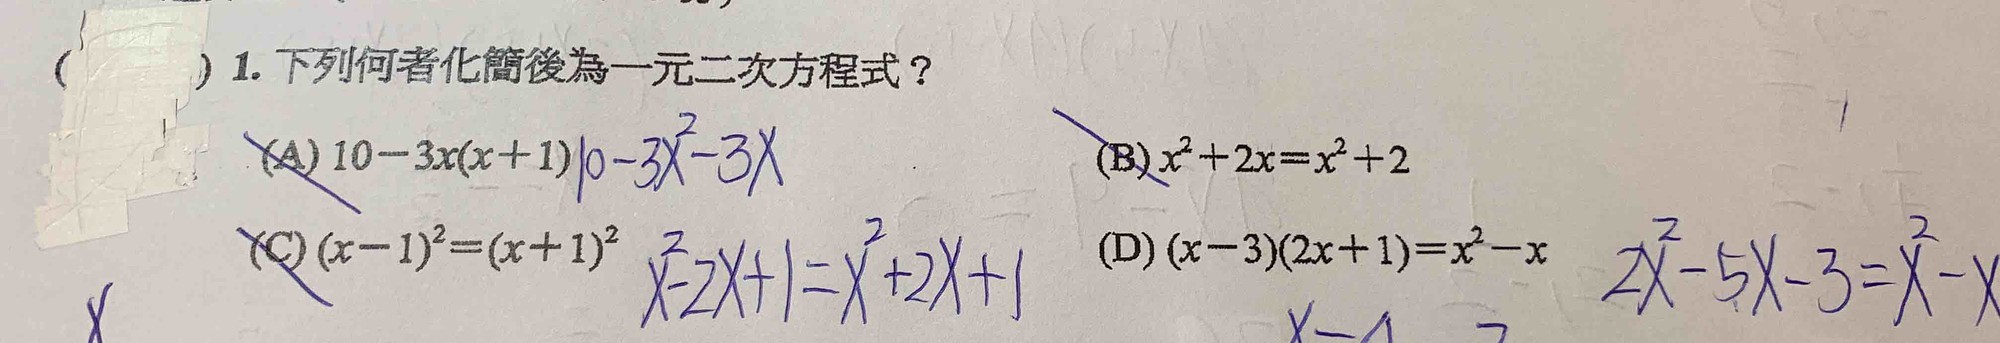 ( ) 1. 下列何者化簡後為一元二次方程式？
(A) 10－3x(x＋1) 10-3x²-3x
(B) x²＋2x＝x²＋2
(C) (x－1)²＝(x＋1)² x²-2x+1=x²+2x+1
(D) (x－3)(2x＋1)＝x²－x 2x²-5x-3=x²-x
x